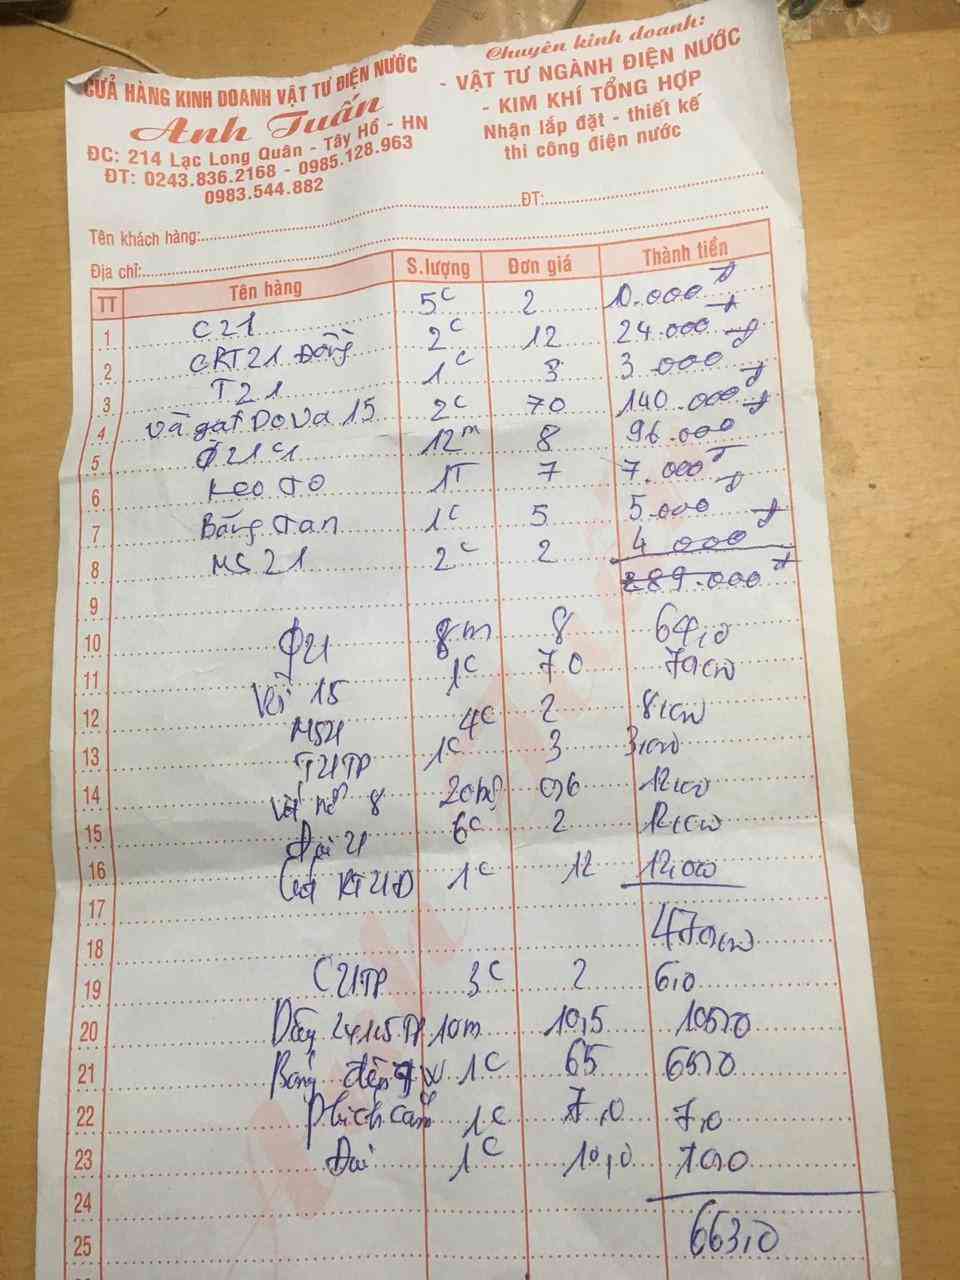 CỬA HÀNG KINH DOANH VẬT TƯ ĐIỆN NƯỚC
Anh Tuấn
ĐC: 214 Lạc Long Quân - Tây Hồ - HN
ĐT: 0243.836.2168 - 0985.128.963
0983.544.882
Chuyên kinh doanh:
- VẬT TƯ NGÀNH ĐIỆN NƯỚC
- KIM KHÍ TỔNG HỢP
Nhận lắp đặt - thiết kế
thi công điện nước
ĐT:
Tên khách hàng:
Địa chỉ:
TT Tên hàng S.lượng Đơn giá Thành tiền
1 C21 5c 2 10.000đ
2 CRT21 Đồng 2c 12 24.000đ
3 T21 1c 3 3.000đ
4 Và gạt DOVa 15 2c 70 140.000đ
5 Φ21 C1 12m 8 96.000đ
6 Keo TO 1T 7 7.000đ
7 Băng Tan 1c 5 5.000đ
8 MS21 2c 2 4000đ
9 289.000đ
10 Φ21 8m 8 64,0
11 15 1c 7.0
12 MS21 4c 2
13 T21TP 1c 3
14 Vít nở 8 20 0,6
15 Đai 21 6c 2
16 Cút RT21Đ 1c 12 12,00
17
18
19 C21TP 3c 2 6,0
20 Dây 10m 10,5 105,0
21 Bóng 1c 65 65,0
22 Phích cắm 1c 7,0 7,0
23 Đui 1c 10,0 10,0
24
25 663,0